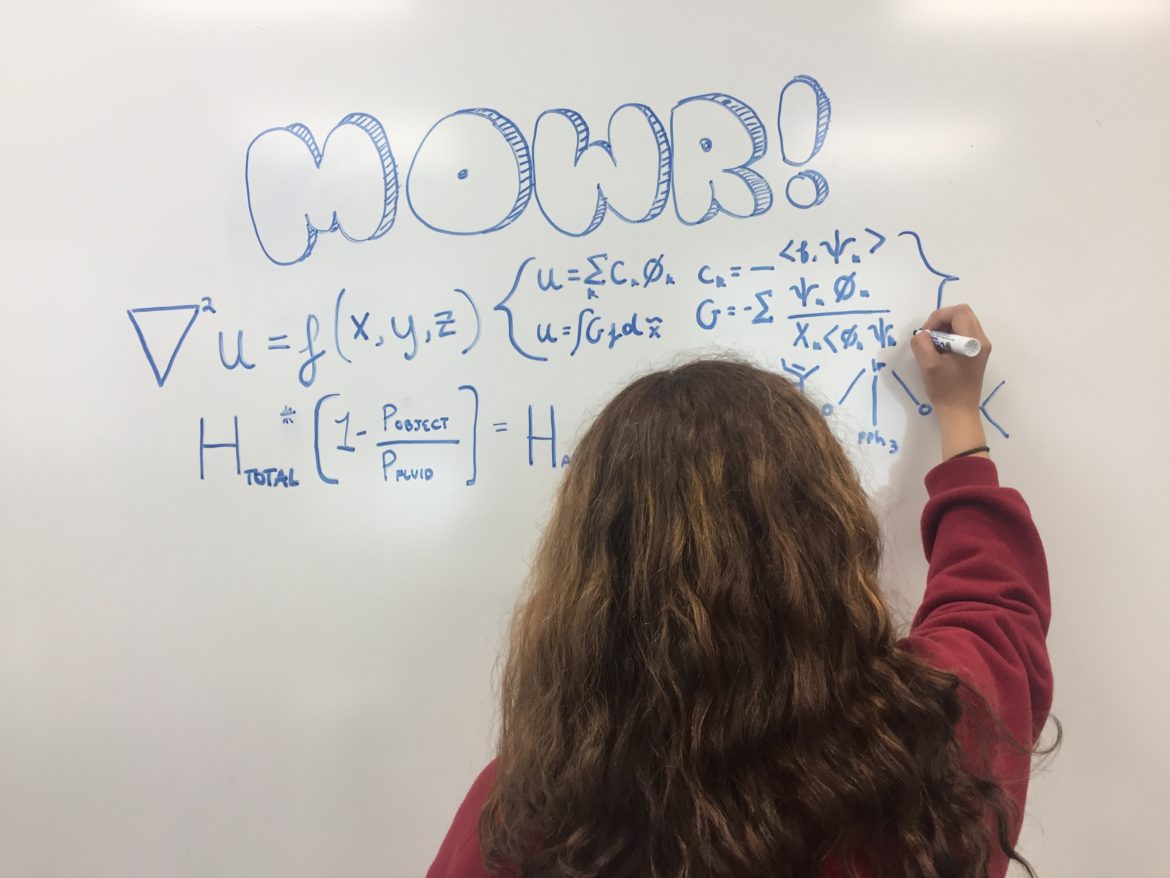 MOWR!
∇² u = f(x, y, z) { u = Σ_k C_k Ø_k   C_k = - <f, Ψ_k> }
u = ∫ G f d x̃   G = - Σ Ψ_n Ø_n / X_n < Ø_n Ψ_n
H_TOTAL * [1 - P_OBJECT / P_FLUID] = H
PPh₃